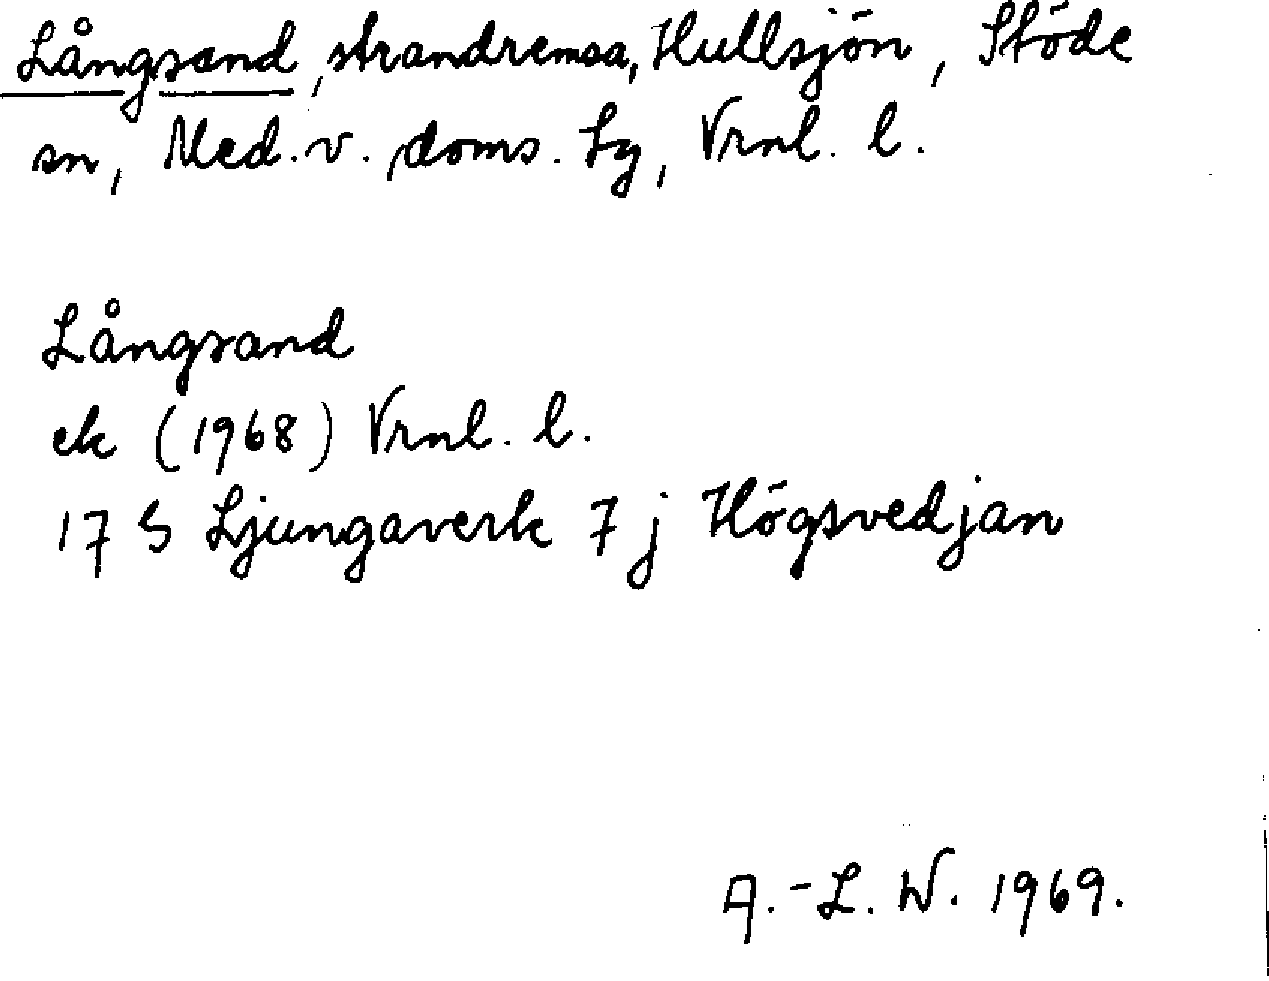 Långsand, strandremsa, Hullsjön, Stöde
sn, Med. v. doms. Lg, Vrnl. l.
Långsand
ek (1968) Vrnl. l.
17 S Ljungaverk 7 j Högsvedjan
A.-L. W. 1969.